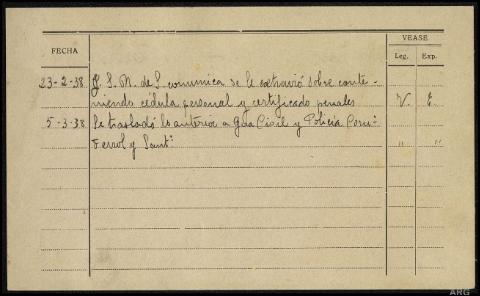 VEASE
FECHA
Leg. Exp.
23-2-38. J. S. M. de S. comunica se le extravió sobre conte-
niendo cédula personal y certificado penales V. E.
5-3-38 Se trasladó lo anterior a Gda Civil y Policía Coruª
Ferrol y Santº " "
ARG